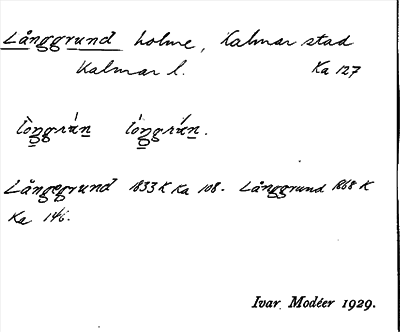 Långgrund holme, Kalmar stad
Kalmar l. Ka 127
lòngrán lóngrán.
Långegrund 1833 K Ka 108. Långgrund 1868 K
Ka 146.
Ivar Modéer 1929.